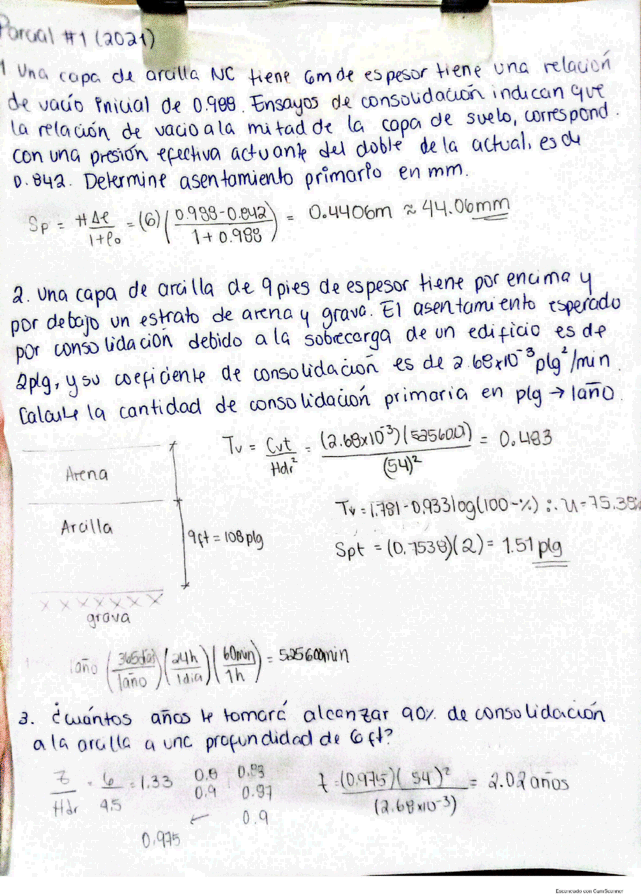 Parcial #1 (2021)
1 Una capa de arcilla NC tiene 6m de espesor tiene una relación
de vacío inicial de 0.988. Ensayos de consolidación indican que
la relación de vacio a la mitad de la capa de suelo, correspond.
con una presión efectiva actuante del doble de la actual, es de
0.842. Determine asentamiento primario en mm.
Sp = HΔe/1+e₀ = (6) (0.988-0.842/1+0.988) = 0.4406m ≈ 44.06mm
2. Una capa de arcilla de 9 pies de espesor tiene por encima y
por debajo un estrato de arena y grava. El asentamiento esperado
por consolidación debido a la sobrecarga de un edificio es de
2plg, y su coeficiente de consolidación es de 2.68x10⁻³ plg²/min.
Calcule la cantidad de consolidación primaria en plg → 1año.
Tv = Cvt/Hdr² = (2.68x10⁻³)(525600)/(54)² = 0.483
Arena
Tv = 1.781-0.933log(100-%) ∴ U=75.38%
Arcilla
9ft = 108plg
Spt = (0.7538)(2) = 1.51 plg
grava
1año (365día/1año)(24h/1dia)(60min/1h) = 525600min
3. ¿Cuántos años le tomará alcanzar 90% de consolidación
a la arcilla a una profundidad de 6ft?
Z/Hdr = 6/4.5 = 1.33
0.8 0.83
0.9 0.97
← 0.9
0.975
t = (0.975)(54)²/(2.68x10⁻³) = 2.02 años
Escaneado con CamScanner